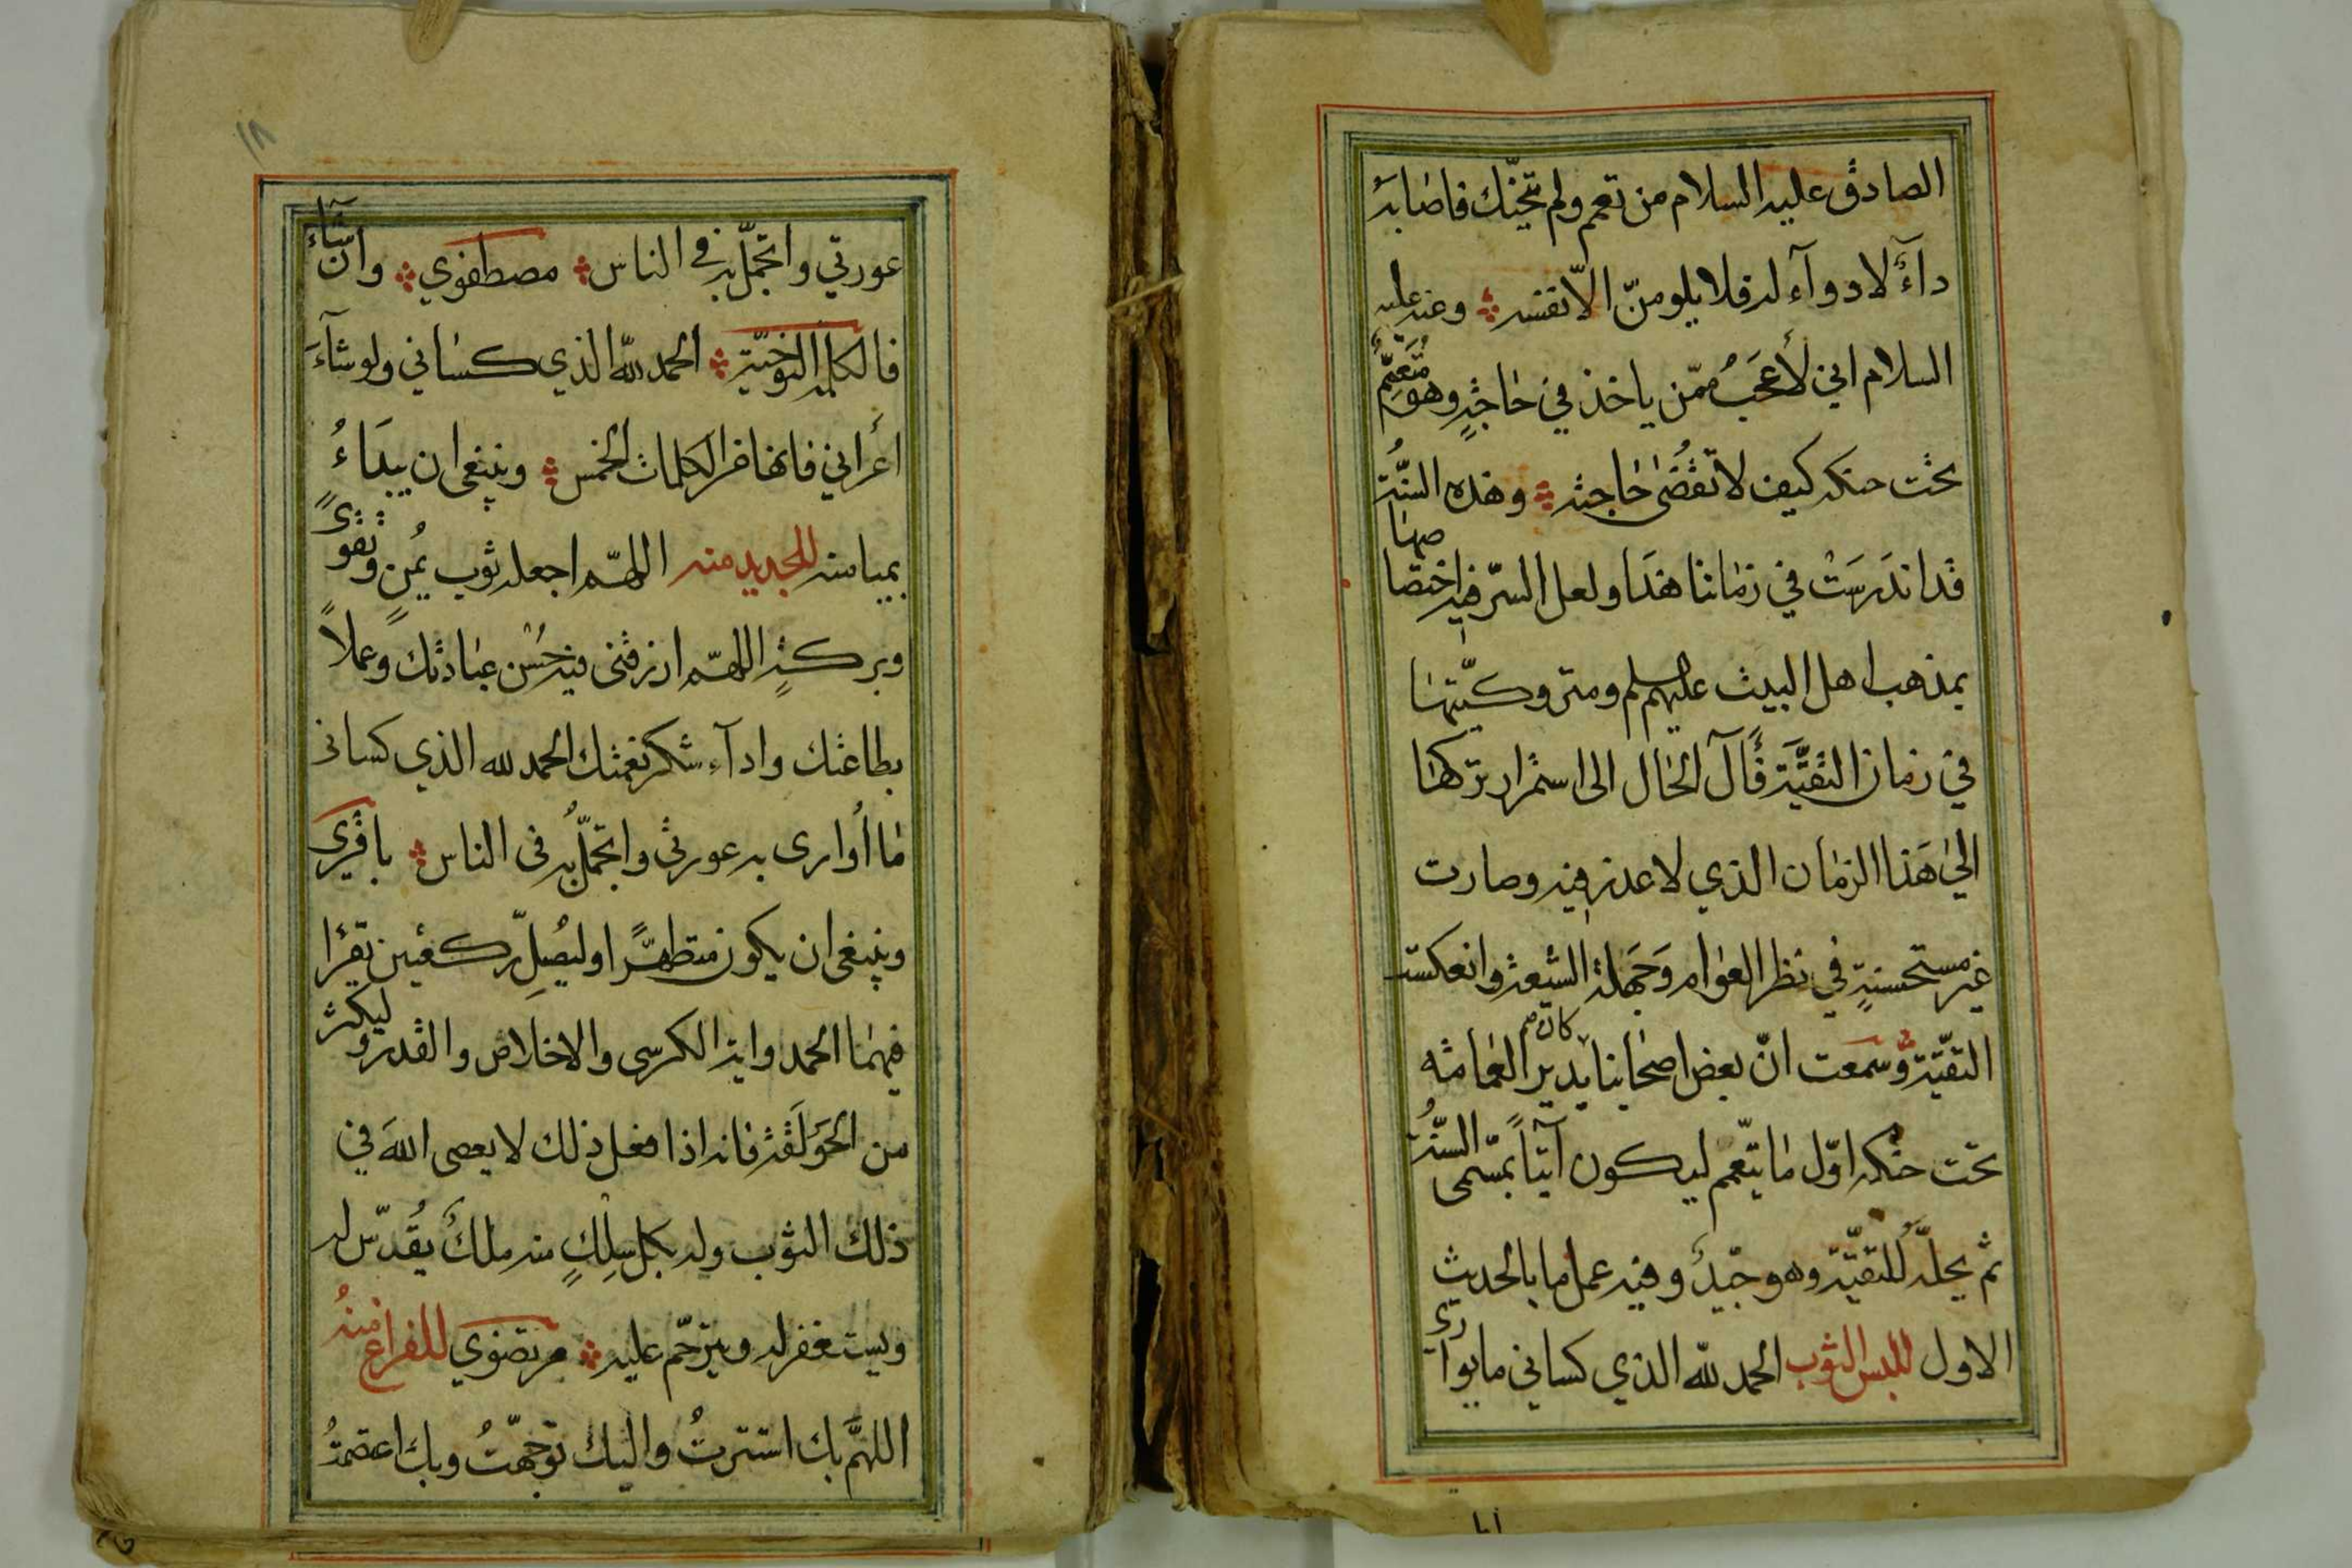 الصادق عليه السلام من تعمم ولم يتحنّك فاصابه
دآءٌ لا دوآء له فلا يلومنّ الّا نفسه وعنه عليه
السلام اني لأعجَبُ ممّن ياخذ في حاجةٍ وهو مُتَعمِّمٌ
تحت حنكه كيف لا تُقضٰى حاجته وهذه السنُّة
قد اندَرسَتْ في زماننا هذا ولعل السرّ فيه اختصاصها
بمذهب اهل البيت عليهم السلم ومتروكيّتها
في زمان التقيَّة فَآل الحال الى استمرار تركها
الىٰ هَذا الزمان الذي لا عذر فيه وصارت
غير مستحسنةٍ في نظر العوام وَجَهلة الشيعة وانعكست
التقيّة وسمعت انّ بعض اصحابنا كان يدير العمامة
تحت حنكه اوّل ما يتعّمم ليكون آتيًا بمسّمى السنُّة
ثم يحلّه للتقيّة وهو جيّدٌ وفيه عمل ما بالحديث
الاول للبس الثوب الحمد لله الذي كساني ما يواري
١٨
عورتي واتجمّل به في الناس مصطفوي وان شآء
فالكلمة النوحيّة الحمد لله الذي كساني ولو شآءَ
أعراني فانها من الكلمات الخمس وينبغي ان يبدَاءُ
بميامنه للجديد منه اللهّم اجعله ثوب يُمنٍ وتقوىً
وبركةٍ اللهّم ارزقنى فيه حُسْن عبادتك وعملاً
بطاعتك وادآء شكر نعمتك الحمد لله الذي كسانى
ما أُوارى به عورتي واتجمّلُ به فى الناس باقرى
وينبغى ان يكون متطهّرًا وليُصلِّ ركعتين تقرٔا
فيهما الحمد واية الكرسى والاخلاص والقدر وليكثر
من الحَولَقة فانه اذا فعل ذلك لا يعصى اللهَ في
ذلك الثوب وله بكل سِلكٍ منه ملكٌ يُقدّس له
ويستغفر له ويترحّم عليه مرتضوي للفراغ منهُ
اللهمَّ بك استترتُ واليك توجّهتُ وبك اعتصمتُ